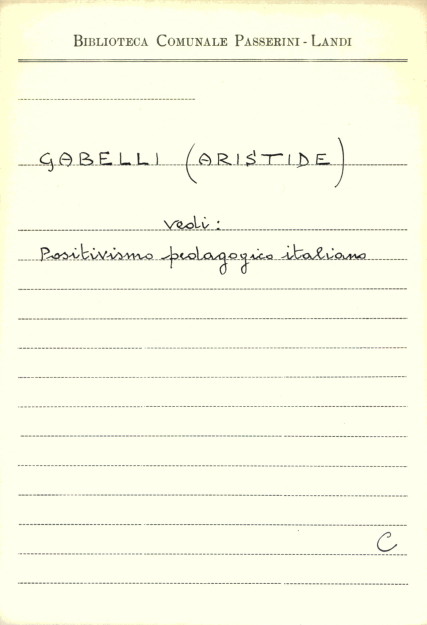 BIBLIOTECA COMUNALE PASSERINI - LANDI
GABELLI (ARISTIDE)
vedi:
Positivismo pedagogico italiano
C